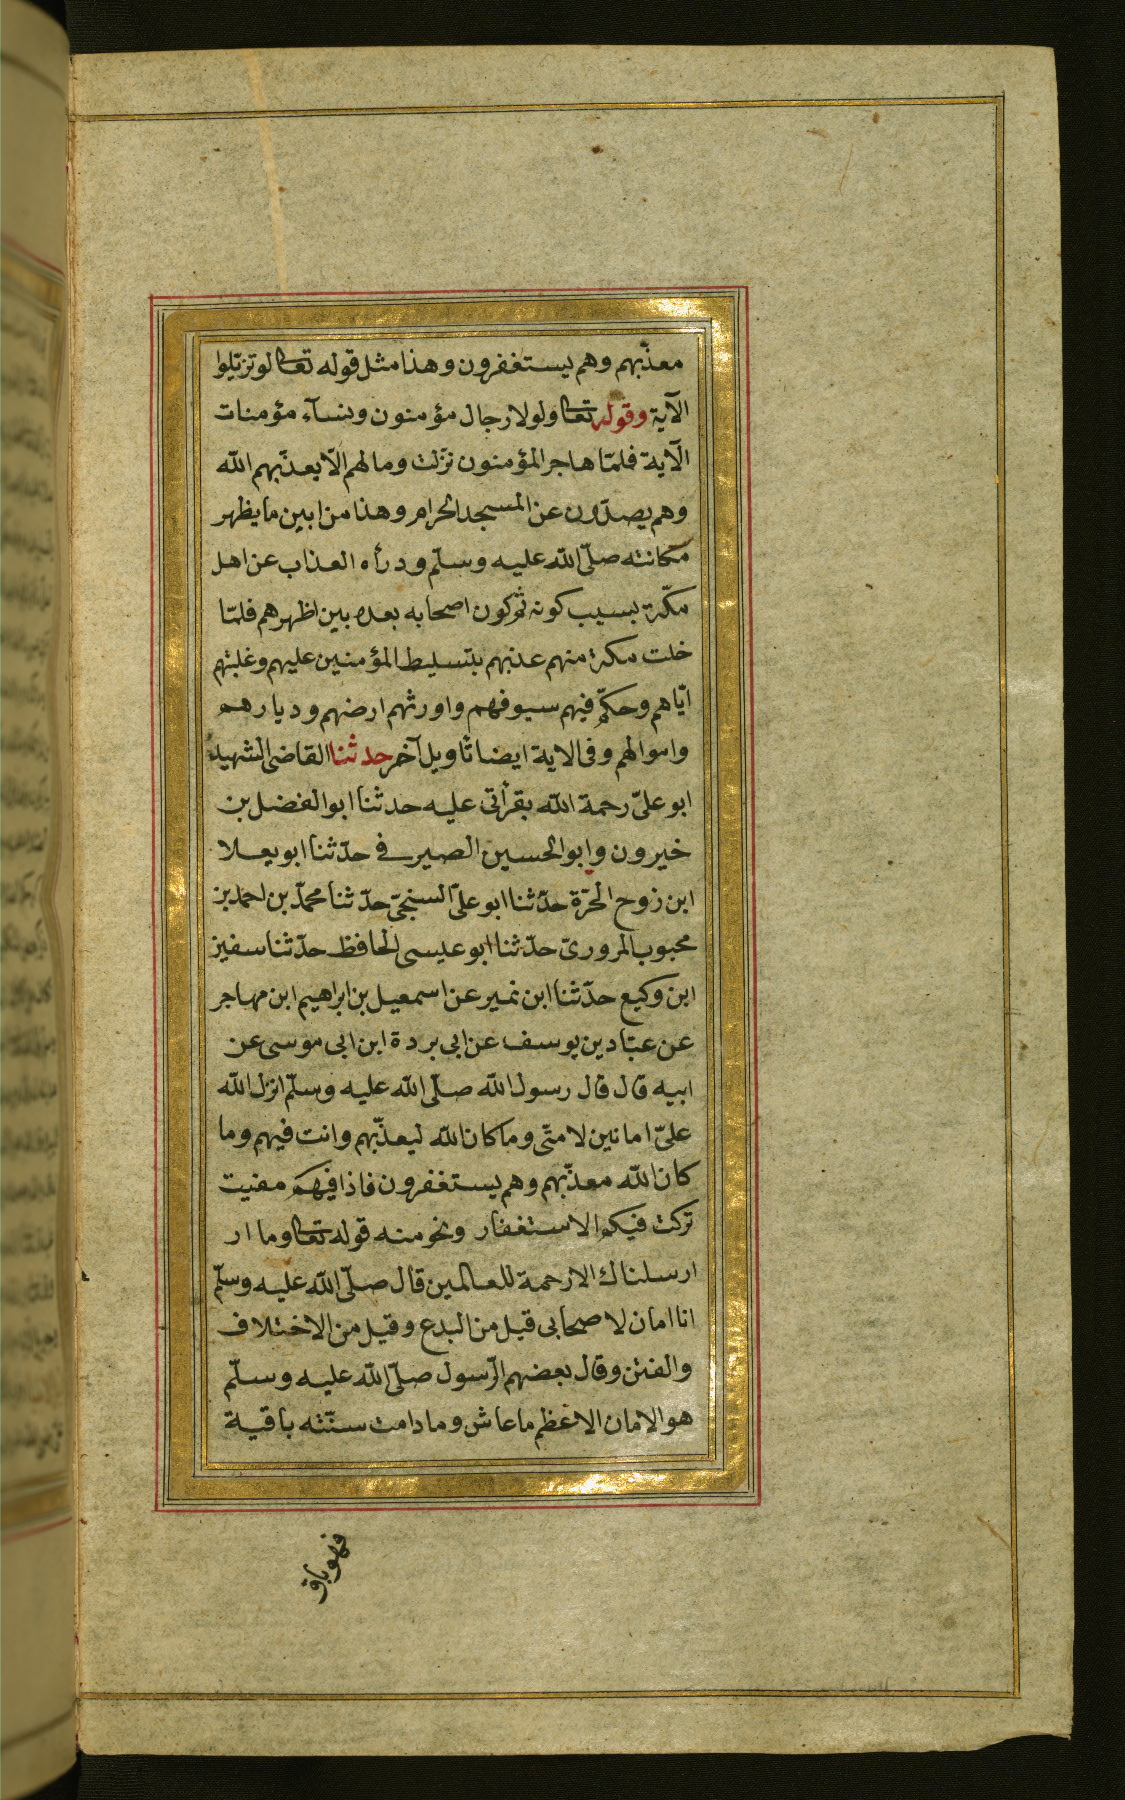 معذّبهم وهم يستغفرون وهذا مثل قوله تعالى لو تزيّلوا
الآية وقوله تعالى ولولا رجال مؤمنون ونسآء مؤمنات
الآية فلمّا هاجر المؤمنون نزلت وما لهم الّا يعذّبهم الله
وهم يصدّون عن المسجد الحرام وهذا من ابين ما يظهر
مكانته صلّى الله عليه وسلّم ودرأه العذاب عن اهل
مكّة بسبب كونه ثم كون اصحابه بعده بين اظهرهم فلمّا
خلت مكة منهم عذبهم بتسليط المؤمنين عليهم وغلبتهم
ايّاهم وحكّم فيهم سيوفهم واورثهم ارضهم وديارهم
واموالهم وفى الاية ايضا تاويل آخر حدثنا القاضى الشهيد
ابو علىّ رحمة الله بقرأتى عليه حدثنا ابو الفضل بن
خيرون وابو الحسين الصيرفى حدّثنا ابو يعلا
ابن زوج الحرّة حدّثنا ابو علىّ السنجىّ حدّثنا محمّد بن احمد بن
محبوب المرورىّ حدّثنا ابو عيسى الحافظ حدّثنا سفين
ابن وكيع حدّثنا ابن نمير عن اسمعيل بن ابراهيم ابن مهاجر
عن عبّاد بن يوسف عن ابى بردة ابن ابى موسى عن
ابيه قال قال رسول الله صلّى الله عليه وسلّم انزل الله
علىّ امانين لامتى وما كان الله ليعذّبهم وانت فيهم وما
كان الله معذّبهم وهم يستغفرون فاذا فيهم مضيت
تركت فيكم الاستغفار ونحو منه قوله تعالى وما ار
ارسلناك الا رحمة للعالمين قال صلّى الله عليه وسلّم
انا امان لاصحابى قيل من البدع وقيل من الاختلاف
والفتن وقال بعضهم الرّسول صلّى الله عليه وسلّم
هو الامان الاعظم ما عاش وما دامت سنّته باقية
فهو باق